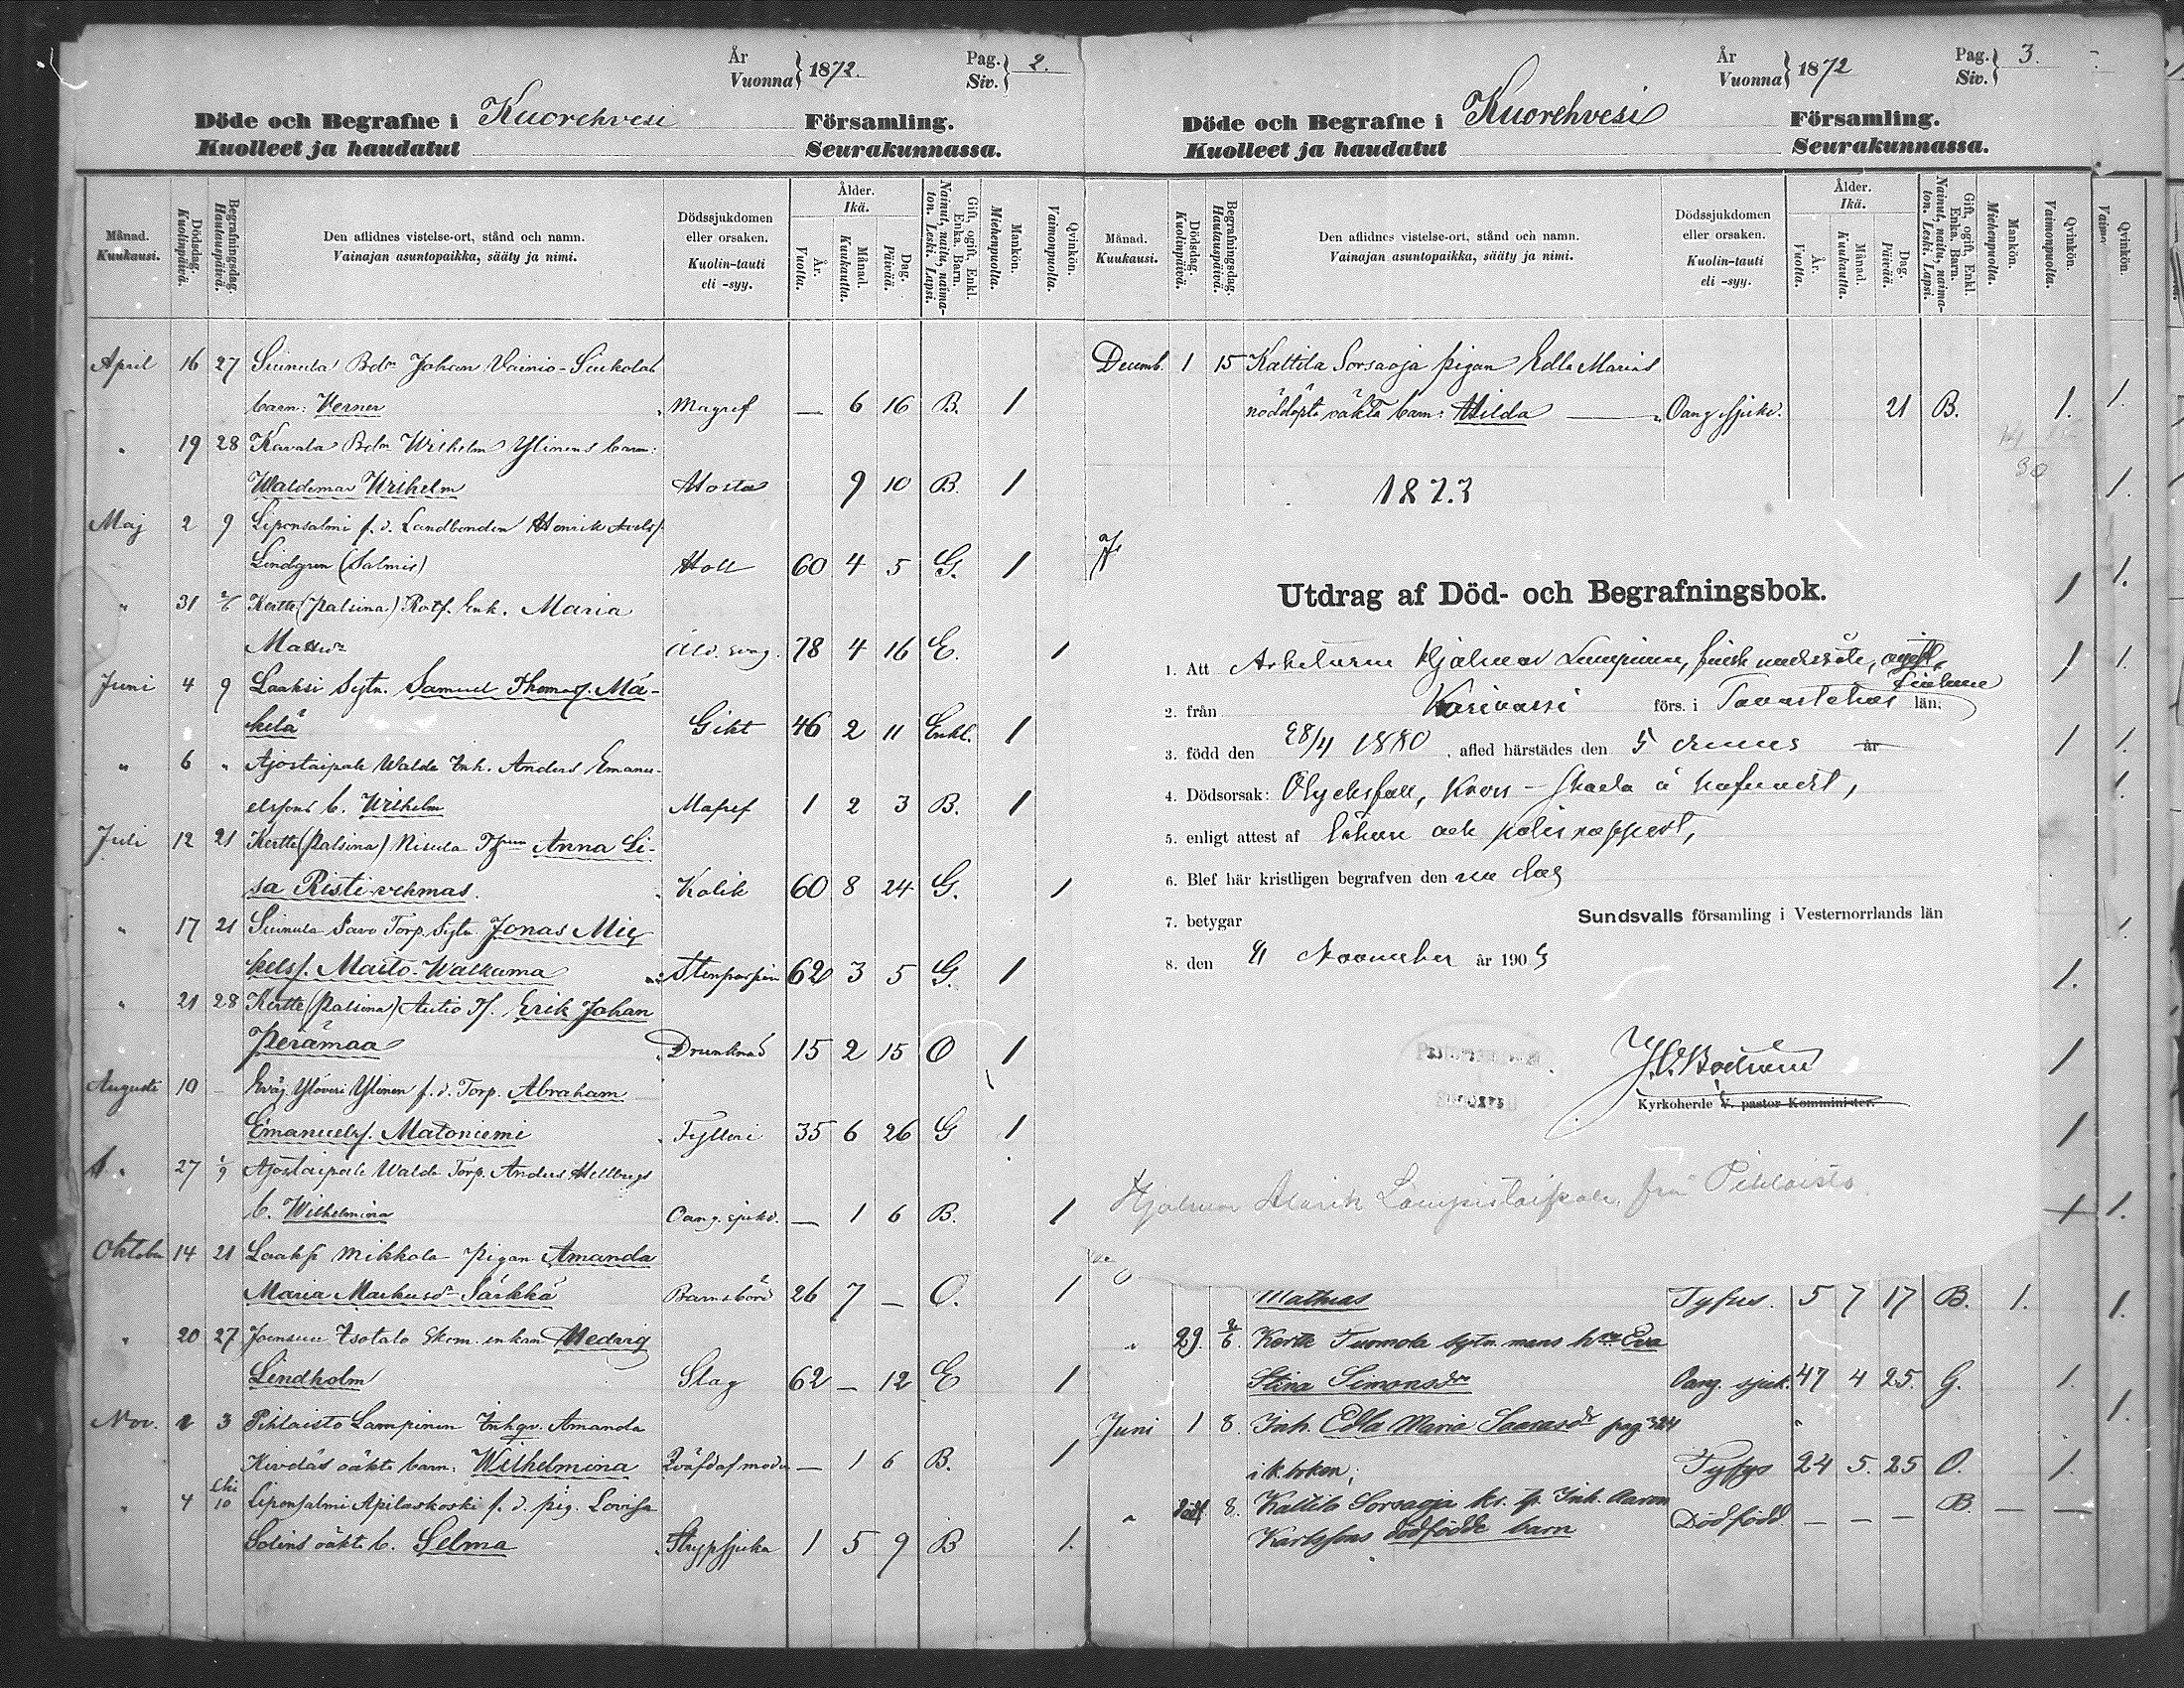 År
Vuonna } 1872. Pag.
Siv. } 2.
Döde och Begrafne i Kuorehvesi Församling.
Kuolleet ja haudatut Seurakunnassa.
Månad.
Kuukausi.
Dödsdag.
Kuolinpäivä.
Begrafningsdag.
Hautauspäivä.
Den aflidnes vistelse-ort, stånd och namn.
Vainajan asuntopaikka, sääty ja nimi.
Dödssjukdomen
eller orsaken.
Kuolin-tauti
eli -syy.
Ålder.
Ikä.
År.
Vuotta.
Månad.
Kuukautta.
Dag.
Päivää.
Gift, ogift, Enkl.
Enka. Barn.
Nainut, nailu, naima-
ton. Leski. Lapsi.
Mankön.
Miehenpuolta.
Qvinkön.
Vaimonpuolta.
April 16 27 Suinula Bdn Johan Vainio-
barn: Verner Magref — 6 16 B. 1
" 19 28 Kavala Bdn Wilhelm Ylinens barn:
Waldemar Wilhelm Hosta 9 10 B. 1
Maj 2 9 Liponsalmi f. d. Landbonden Henrik
Lindgren (Salmis) Håll 60 4 5 G. 1
" 31 2/6 Kertte (Palsina) Rotf. Enk. Maria
Mattsdr Åld. svag. 78 4 16 E. 1
Juni 4 9 Laaksi Sytn. Samuel Thomasf. Mä-
kelä Gikt 46 2 11 Enkl. 1
" 6 " Ajostaipale Walda Inh. Anders Emanu-
elsfons b. Wilhelm Mafref 1 2 3 B. 1
Juli 12 21 Kertte (Palsina) Nisula Anna Li-
sa Ristivehmas. Kolik 60 8 24 G. 1
" 17 21 Suinula Savo Torp. Sytn. Jonas Mic
kelsf. Maito-Walkama 62 3 5 G. 1
" 21 28 Kertte (Palsina) Autio Tf. Erik Johan
Perämaa Drunknad 15 2 15 O 1
Augusti 10 — Eväj. Ylöveri Ylinen f. d. Torp. Abraham
Emanuelsf. Matoniemi 35 6 26 G 1
27 1/9 Ajostaipale Walda Torp. Anders Hellbergs
b. Wilhelmina Oang. sjukd. — 1 6 B. 1
Oktober 14 21 Laakso Mikkola pigan Amanda
Maria Markusdr Särkkä Barnsbörd 26 7 — O. 1
" 20 27 Joensuu Isotalo Skom. enkan Hedvig
Lindholm Slag 62 — 12 E 1
Nov. 2 3 Pihlaisto Lampinen Inhqv. Amanda
Kiveläs oäkta barn. Wilhelmina Qväfdaf modern — 1 6 B. 1
" 4 10 Liponsalmi Apilaskoski f. d. pig. Lovisa
Solins oäkta b. Selma Strypsjuka 1 5 9 B 1.
År
Vuonna } 1872 Pag.
Siv. } 3.
Döde och Begrafne i Kuorehvesi Församling.
Kuolleet ja haudatut Seurakunnassa.
Månad.
Kuukausi.
Dödsdag.
Kuolinpäivä.
Begrafningsdag.
Hautauspäivä.
Den aflidnes vistelse-ort, stånd och namn.
Vainajan asuntopaikka, sääty ja nimi.
Dödssjukdomen
eller orsaken.
Kuolin-tauti
eli -syy.
Ålder.
Ikä.
År.
Vuotta.
Månad.
Kuukautta.
Dag.
Päivää.
Gift, ogift, Enkl.
Enka. Barn.
Nainut, nailu, naima-
ton. Leski. Lapsi.
Mankön.
Miehenpuolta.
Qvinkön.
Vaimonpuolta.
Decemb. 1 15 Kattila Sorsaoja pigan Edla Marias
nöddöpta oäkta barn: Hilda — Oang. Sjukd. 21 B. 1.
30
1873
Utdrag af Död- och Begrafningsbok.
1. Att Arbetaren Hjalmar Lampinen, finsk undersåte, ogift,
2. från förs. i Tavastehus län. Finland
3. född den 28/4 1880, afled härstädes den 5 dennes år
4. Dödsorsak: Olycksfall, Kross-skada å hufvudet,
5. enligt attest af läkare och polisrapport,
6. Blef här kristligen begrafven den nu dag
7. betygar Sundsvalls församling i Vesternorrlands län
8. den 11 November år 190
Kyrkoherde V. pastor Komminister.
Hjalmar Alarik Lampistaipale, från Pihlaisto.
Mathias Tyfus. 5 7 17 B. 1.
" 29. 2/6. Kertte Tuomola sytn. mans hru Eva
Stina Simonsdr Oang. sjuk. 47 4 25. G. 1.
Juni 1 8. Inh. Edla Maria pag 324
i k. boken; Tyfus 24 5. 25 O. 1.
" 8. Kattila Sorsaoja Inh. Aaron
Karlssons dödfödde barn Dödfödd. — — — B. — —